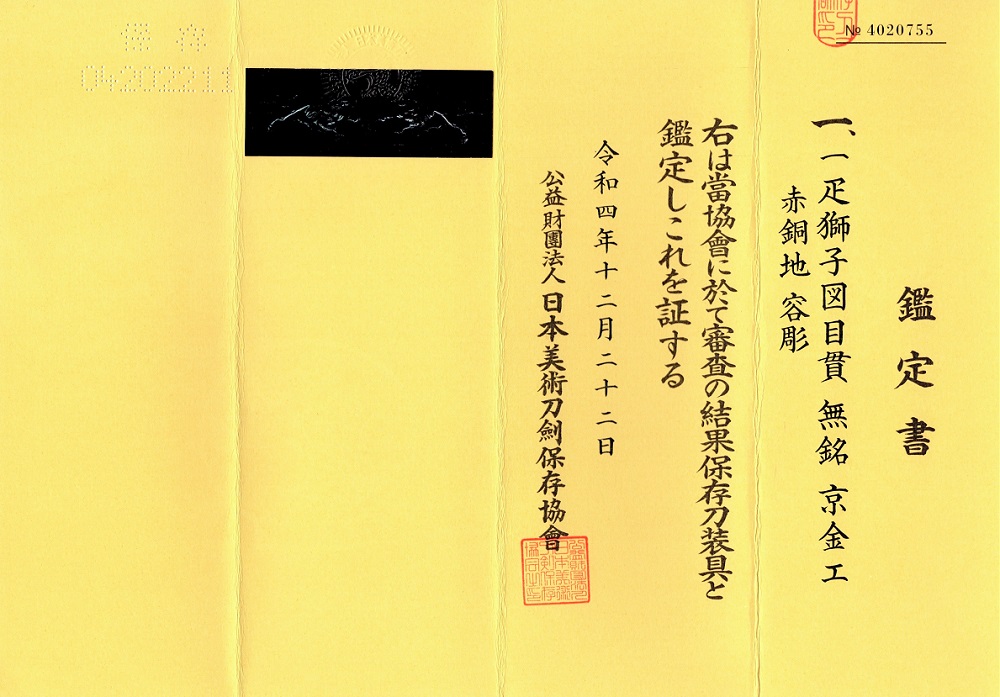 № 4020755
鑑定書
一、一疋獅子図目貫 無銘 京金工
赤銅地 容彫
右は當協會に於て審査の結果保存刀装具と
鑑定しこれを証する
令和四年十二月二十二日
公益財團法人 日本美術刀劍保存協會
保存
04202211